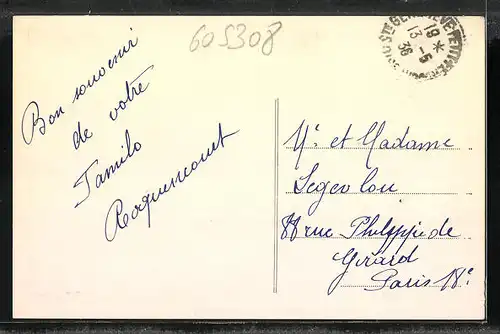 605308
19 *
13 -5
36
Bon souvenir
de votre
Famille
Mr et Madame
88 rue Philippe de
Girard
Paris 18e